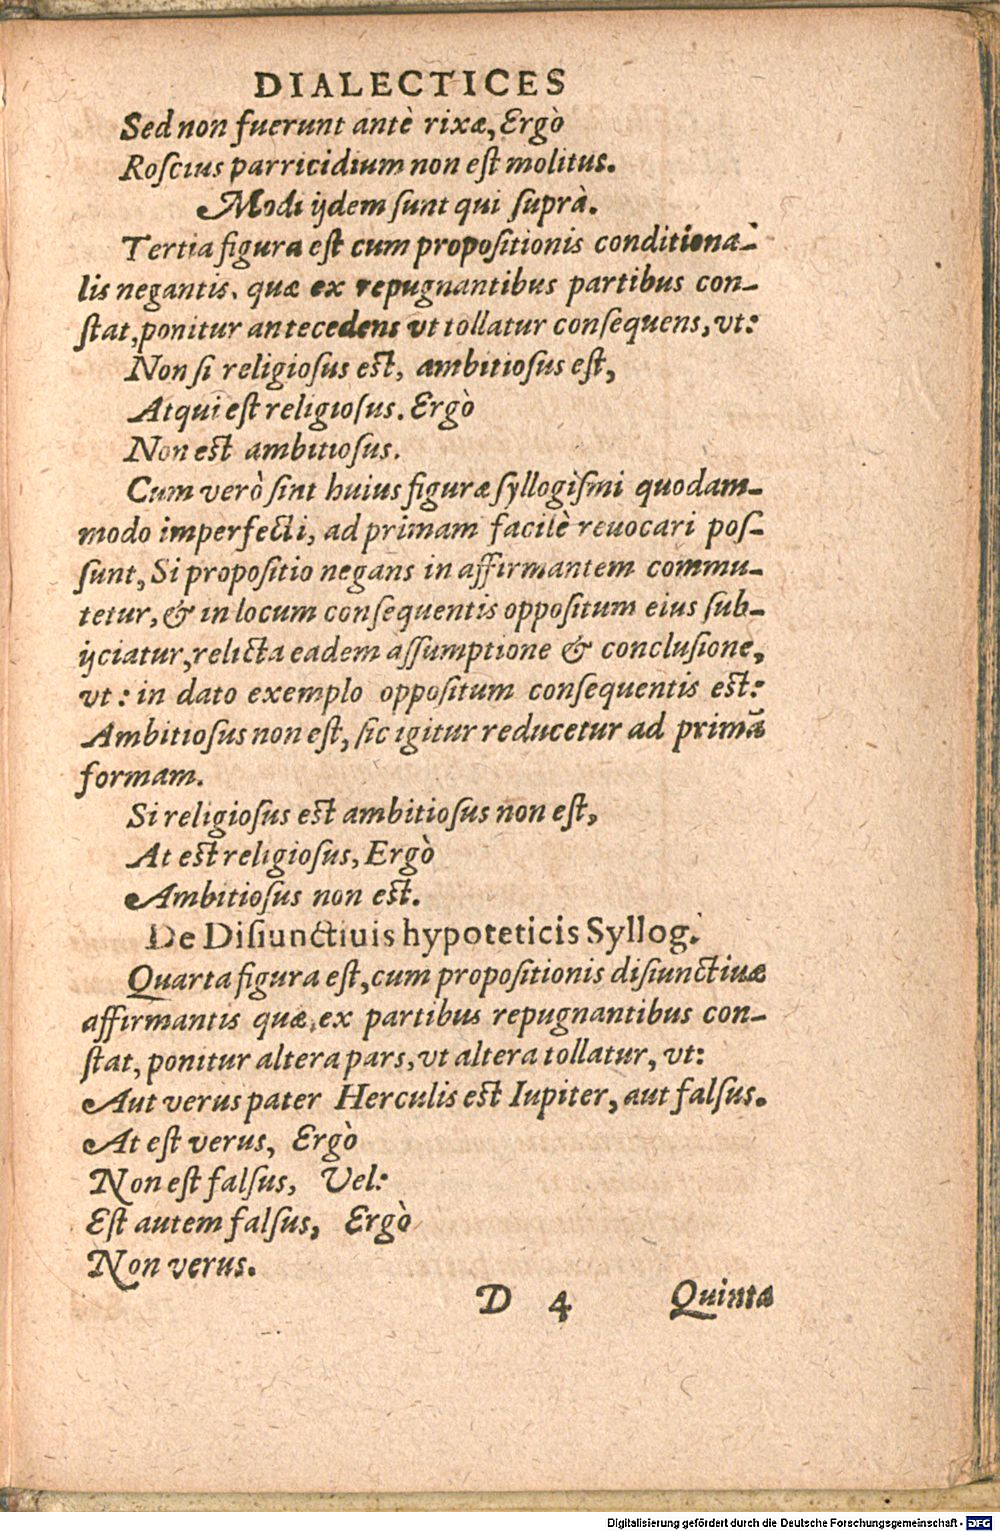 DIALECTICES
Sed non fuerunt antè rixæ, Ergò
Roſcius parricidium non eſt molitus.
Modi ijdem ſunt qui ſuprà.
Tertia figura eſt cum propoſitionis conditiona-
lis negantis. quæ ex repugnantibus partibus con-
ſtat, ponitur antecedens vt tollatur conſequens, vt:
Non ſi religioſus eſt, ambitioſus eſt,
Atqui eſt religioſus. Ergò
Non eſt ambitioſus.
Cum verò ſint huius figuræ ſyllogiſmi quodam-
modo imperfecti, ad primam facilè reuocari poſ-
ſunt, Si propoſitio negans in affirmantem commu-
tetur, & in locum conſequentis oppoſitum eius ſub-
ijciatur, relicta eadem aſſumptione & concluſione,
vt: in dato exemplo oppoſitum conſequentis eſt:
Ambitioſus non eſt, ſic igitur reducetur ad primã
formam.
Si religioſus eſt ambitioſus non eſt,
At eſt religioſus, Ergò
Ambitioſus non eſt.
De Diſiunctiuis hypoteticis Syllog.
Quarta figura eſt, cum propoſitionis diſiunctiuæ
affirmantis quæ, ex partibus repugnantibus con-
ſtat, ponitur altera pars, vt altera tollatur, vt:
Aut verus pater Herculis eſt Iupiter, aut falſus.
At eſt verus, Ergò
Non eſt falſus, Vel:
Eſt autem falſus, Ergò
Non verus.
D 4 Quinta
Digitalisierung gefördert durch die Deutsche Forschungsgemeinschaft - DFG